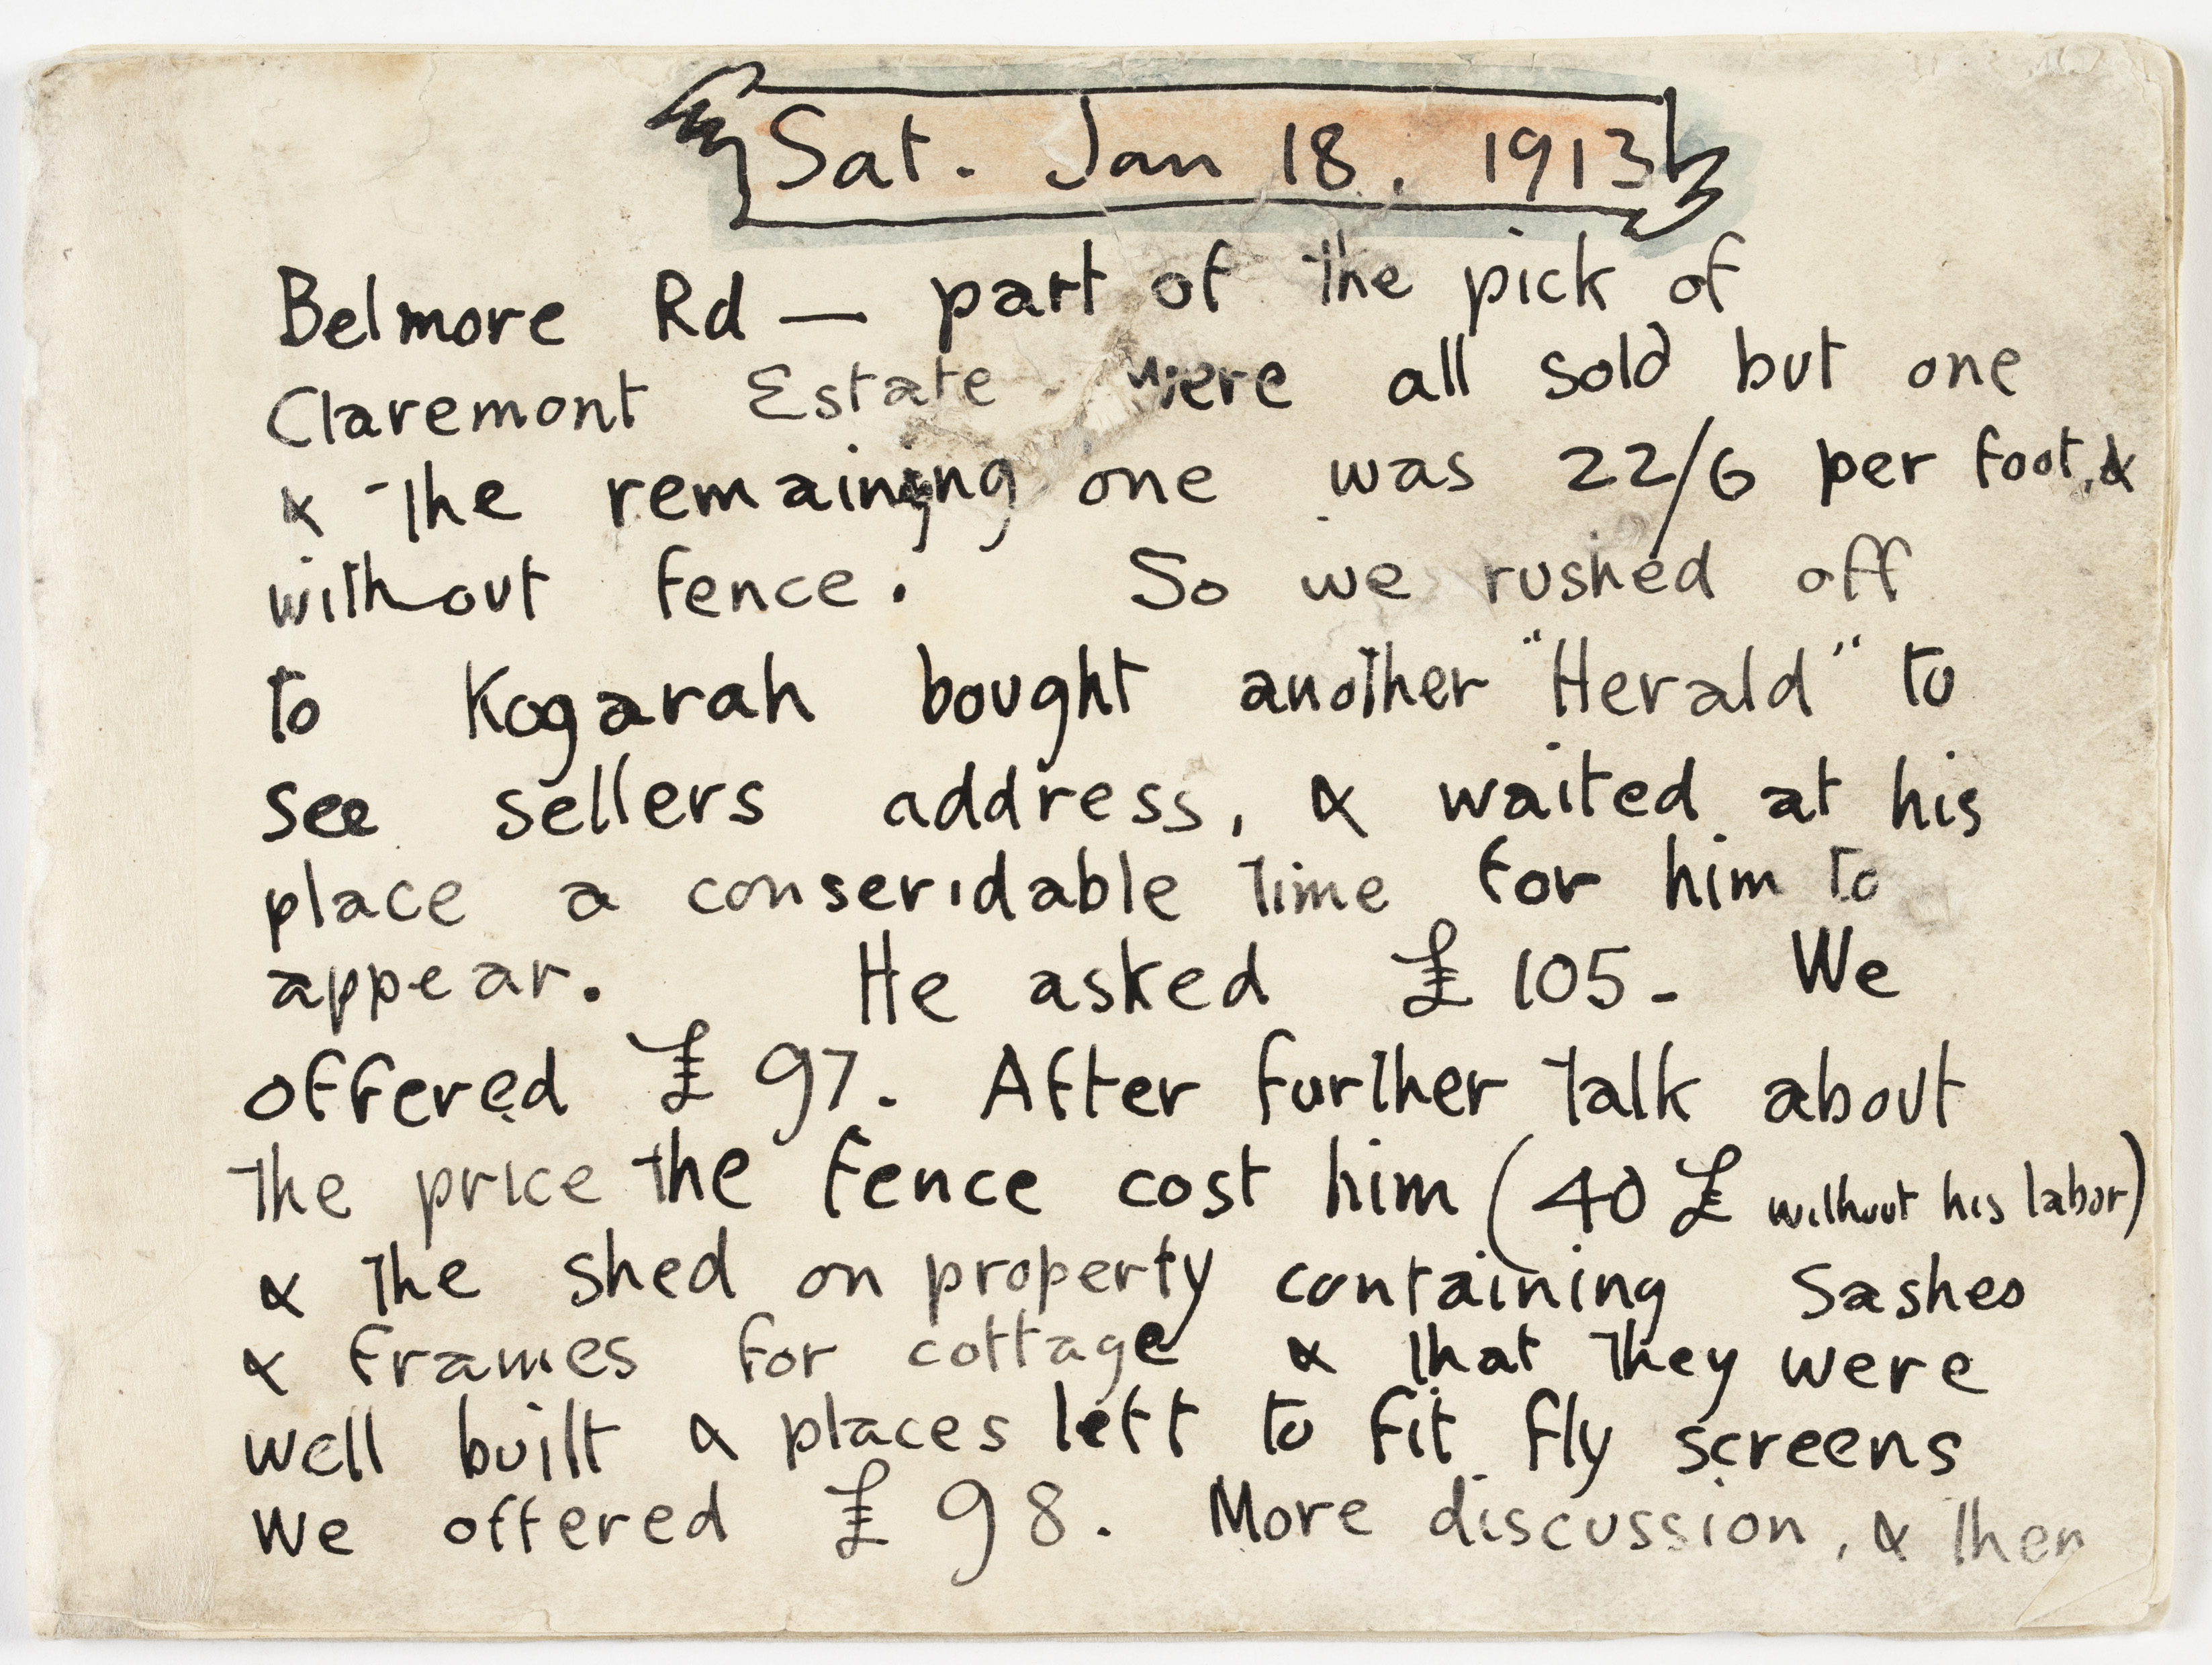 Sat. Jan 18, 1913
Belmore Rd — part of the pick of
Claremont Estate were all sold but one
& the remaining one was 22/6 per foot, &
without fence. So we rushed off
to Kogarah bought another "Herald" to
see sellers address, & waited at his
place a conseridable time for him to
appear. He asked £ 105. We
offered £ 97. After further talk about
the price the fence cost him (40 £ without his labor)
& the shed on property containing Sashes
& frames for cottage & that they were
well built & places left to fit fly screens
we offered £ 98. More discussion, & then